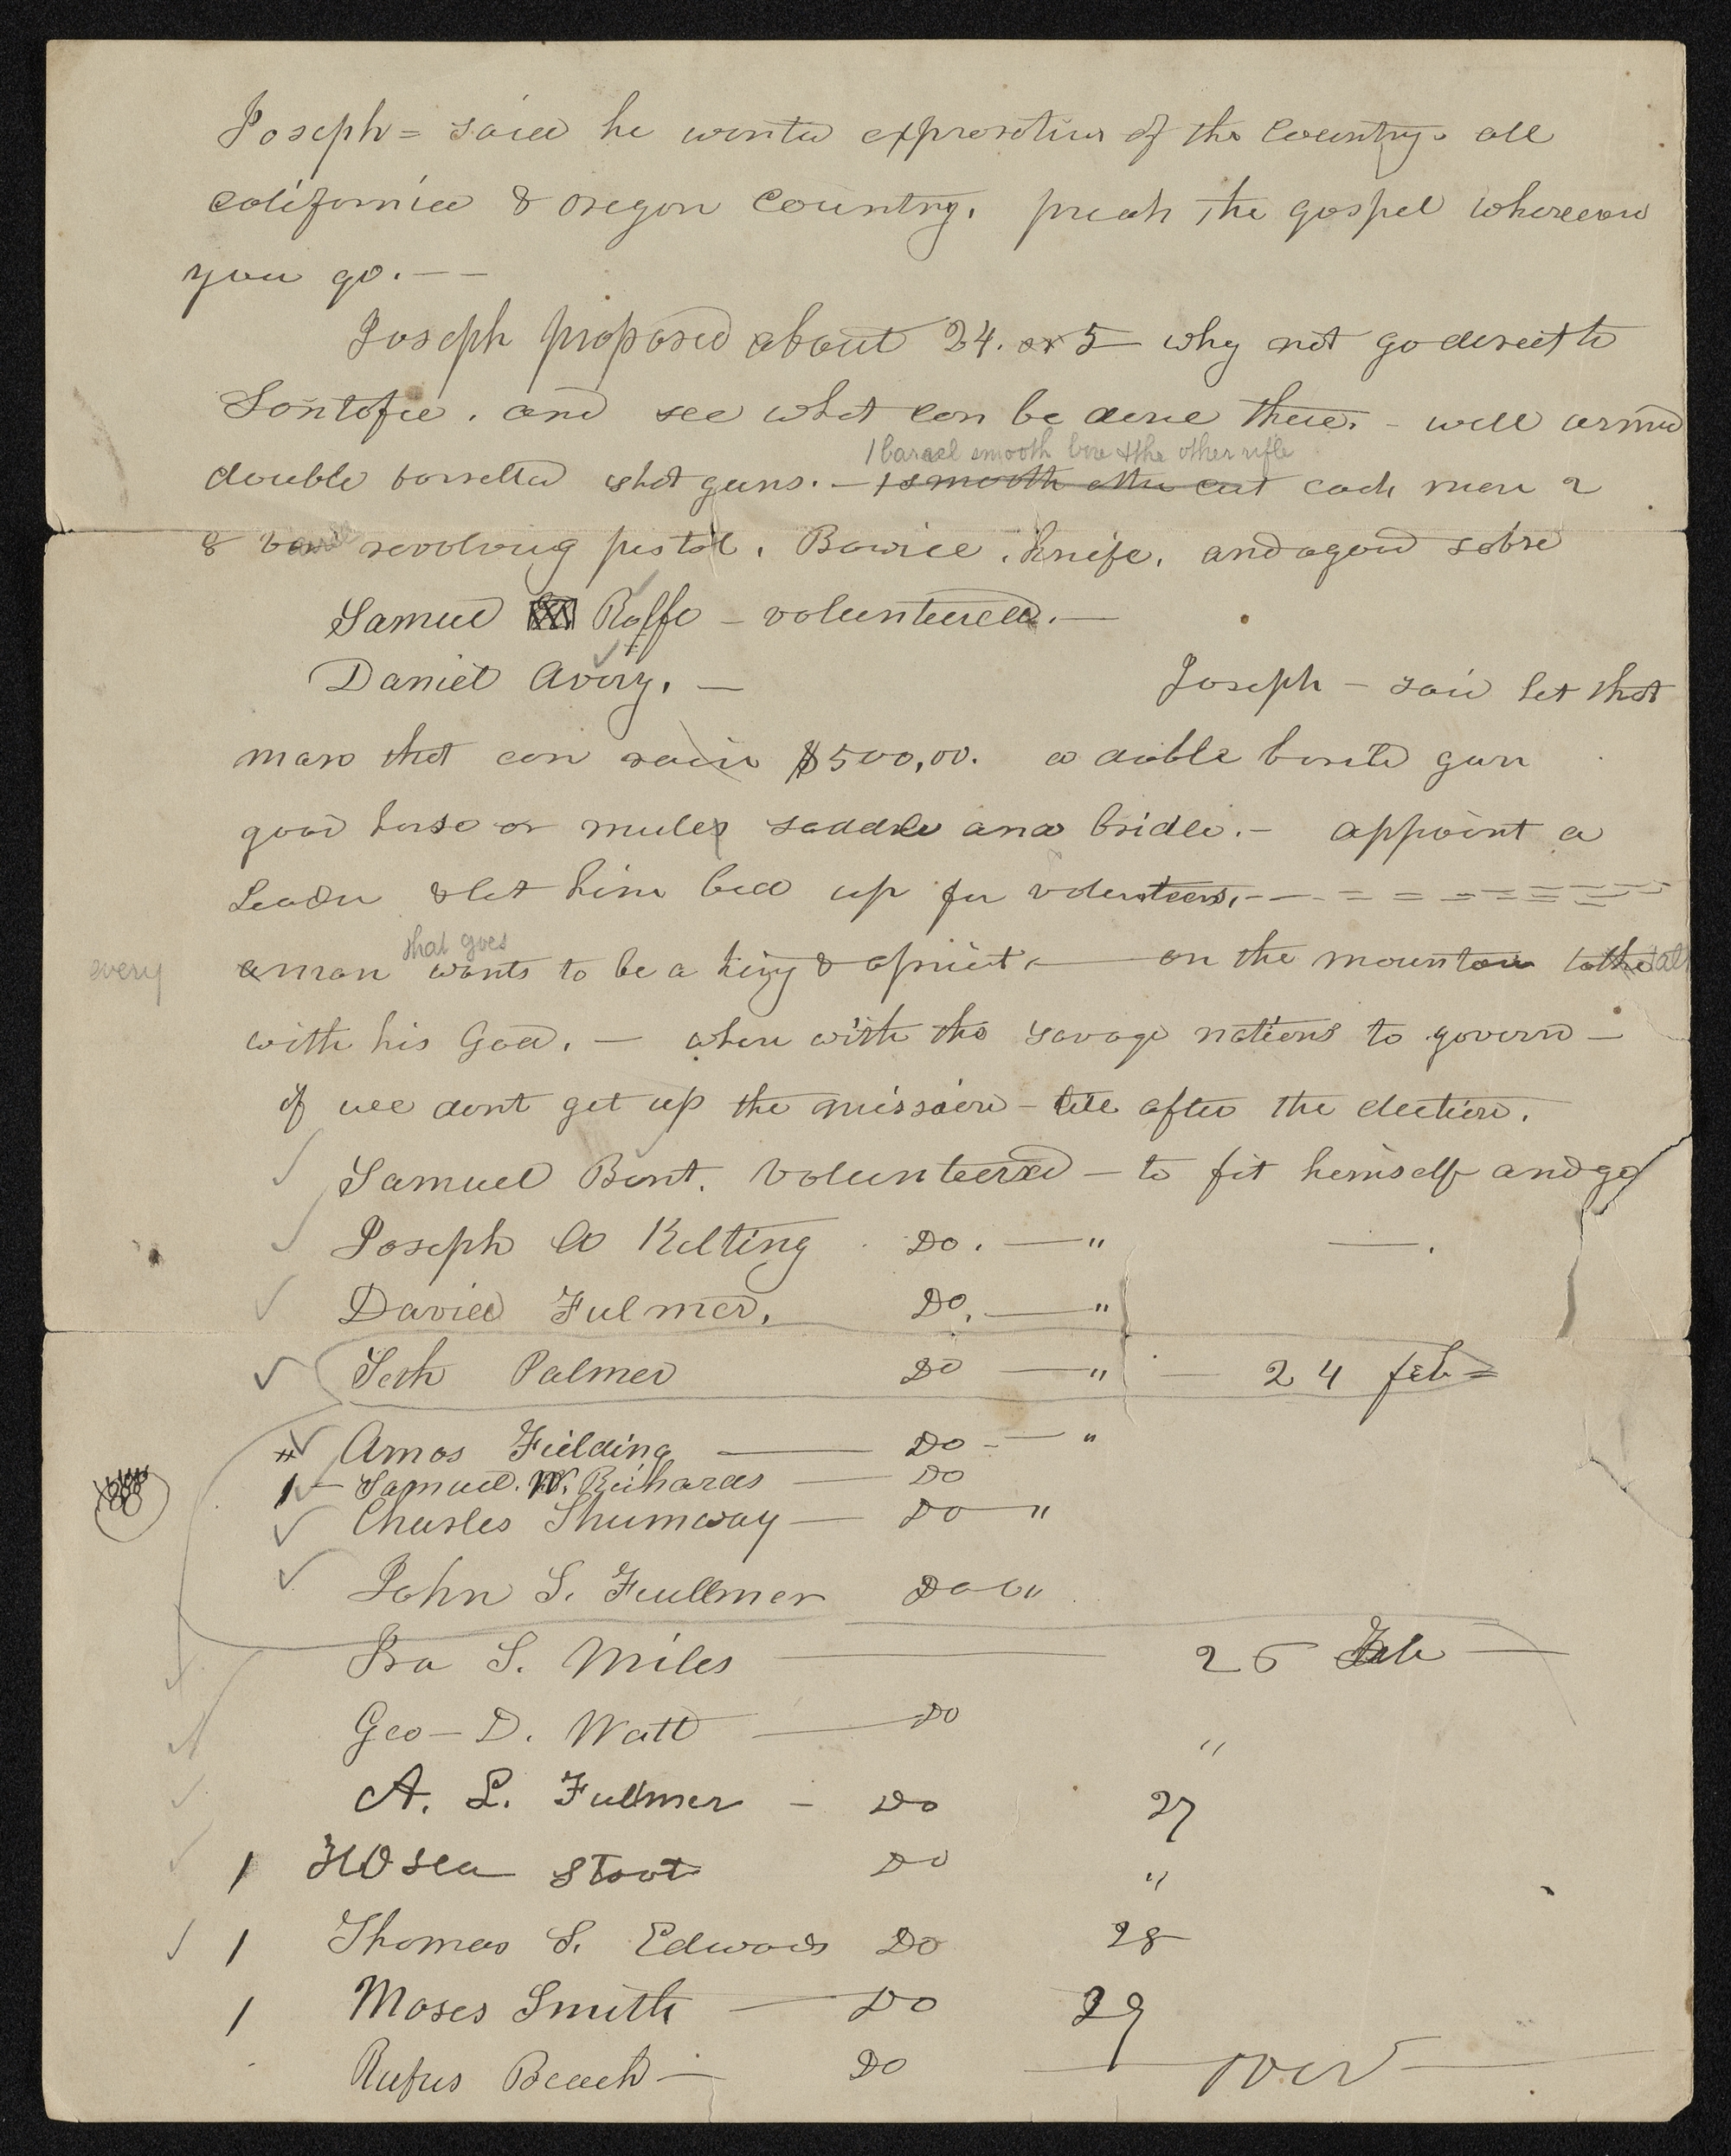 Joseph= said he wants expresetion of the country. all
california & oregon country. preah the gospel whereever
you go.——
Joseph proposed about 24. or 5— why not go direct to
Santafee. and see what can be done there. - well armed
1 barael smooth bore & the other rifle
double barrelled shot guns. — 1 smooth other cut each man 2
8 barrel revolving pistol. Bowiee. knife. and a good sabre
Samuel Rolfe — volunteered. —
Daniel Avery. — Joseph — said let that
man that can raise $500,00. a double barreld gun
good horse or mules saddle and bridle. — appoint a
Leader & let him beat up for volenteers.
that goes
every a man wants to be a king & a priest. — on the mountain to the talk
with his God. — when with the savage nations to govern —
if we dont get up the mission — till after the election.
Samuel Bent. volunteered — to fit himself and go
Joseph A Kelting Do. — " — .
David Fulmer. Do. — "
Seth Palmer Do — " — 24 feb=
# Amos Fielding — Do - — "
1 — Samuel. W. Richards — Do
Charles Shumway — Do "
John S. Fullmer Do "
Ira S. Miles — 26 Feb —
Geo — D. Watt — Do "
A. L. Fullmer — Do 27
1 HOsea Stout Do "
1 Thomas S. Edwods Do 28
1 Moses Smith — Do 29
Rufus Beach — Do — over —